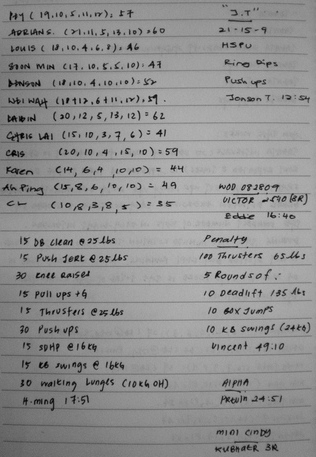 ADRIAN S. (21,11,5,13,10) = 60
LOUIS (18,10,4,6,8) = 46
SOON MIN (17,10,5,5,10) = 47
BENSON (18,10,4,10,10) = 52
59
(20,12,5,13,12) = 62
CHRIS LAI (15,10,3,7,6) = 41
CRIS (20,10,4,15,10) = 59
Karen (14,6,4,10,10) = 44
Ah Ping (15,8,6,10,10) = 49
CL (10,8,3,8,5) = 35
15 DB Clean @ 25 lbs
15 Push Jerk @ 25 lbs
30 Knee Raises
15 Pull ups + G
15 Thrusters @ 25 lbs
30 Push ups
15 SDHP @ 16kg
15 KB swings @ 16KG
30 walking Lunges (10KG OH)
H.ming 17:51
"J.T"
21-15-9
HSPU
Ring Dips
Push ups
Jonson T. 12:54
WOD 082809
VICTOR
Eddie 16:40
Penalty
100 Thrusters 65 lbs
5 Rounds of :
10 Deadlift 135 lbs
10 Box Jumps
10 KB Swings (24kg)
Vincent 49.10
ALPHA
24:51
mini Cindy
3R